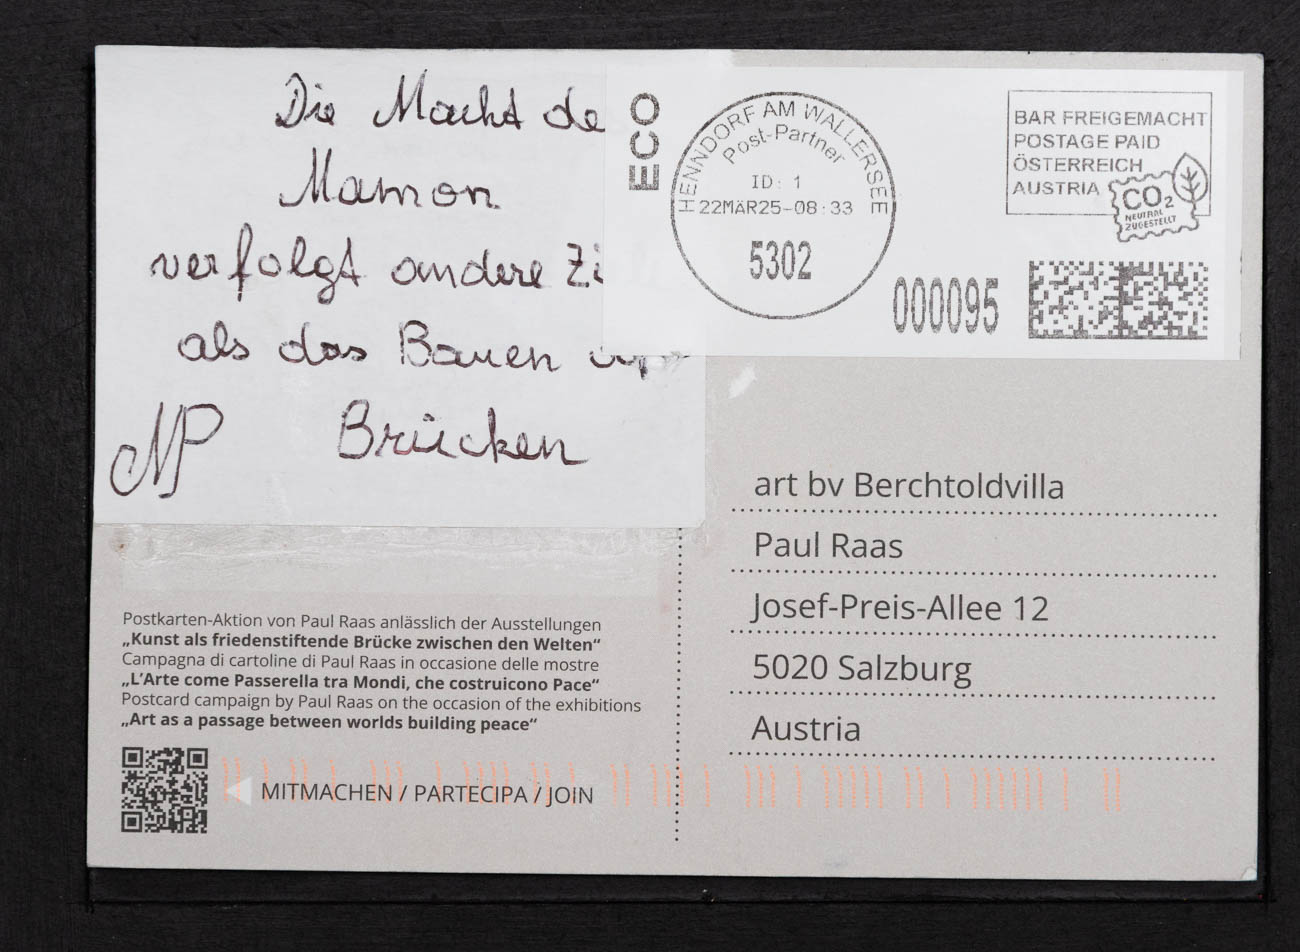 Die Macht de
Mamon
verfolgt andere Zi
als das Bauen
Brücken
NP
ECO
HENNDORF AM WALLERSEE
Post-Partner
ID: 1
22MÄR25-08:33
5302
000095
BAR FREIGEMACHT
POSTAGE PAID
ÖSTERREICH
AUSTRIA
CO2
NEUTRAL
ZUGESTELLT
art bv Berchtoldvilla
Paul Raas
Josef-Preis-Allee 12
5020 Salzburg
Austria
Postkarten-Aktion von Paul Raas anlässlich der Ausstellungen
„Kunst als friedenstiftende Brücke zwischen den Welten“
Campagna di cartoline di Paul Raas in occasione delle mostre
„L’Arte come Passerella tra Mondi, che costruicono Pace“
Postcard campaign by Paul Raas on the occasion of the exhibitions
„Art as a passage between worlds building peace“
MITMACHEN / PARTECIPA / JOIN